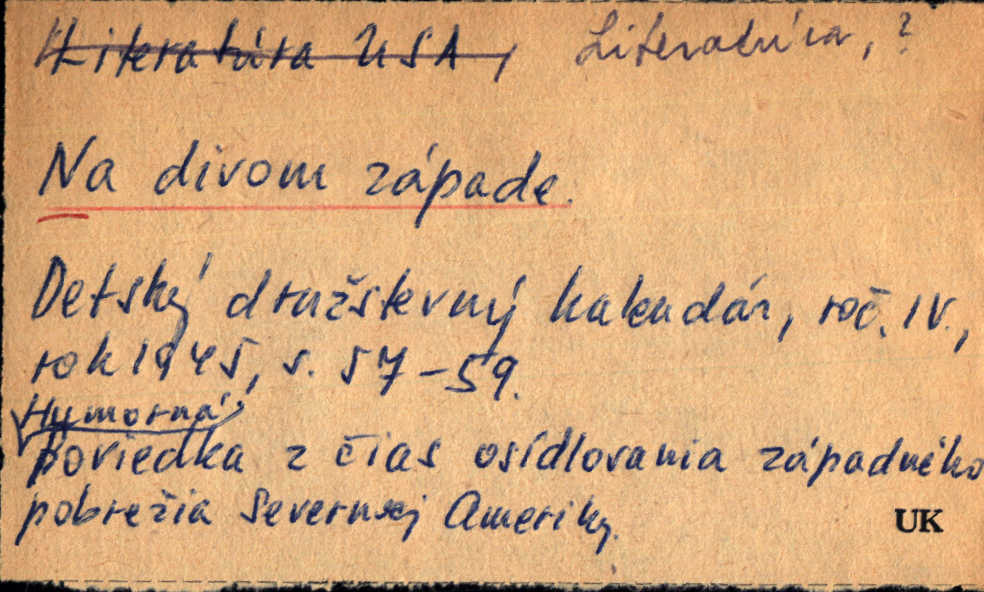 Literatúra USA, Literatúra, ?
Na divom západe.
Detský družstevný kalendár, roč. IV.,
rok 1945, s. 57-59.
Humorná
poviedka z čias osídlovania západného
pobrežia Severnej Ameriky.
UK